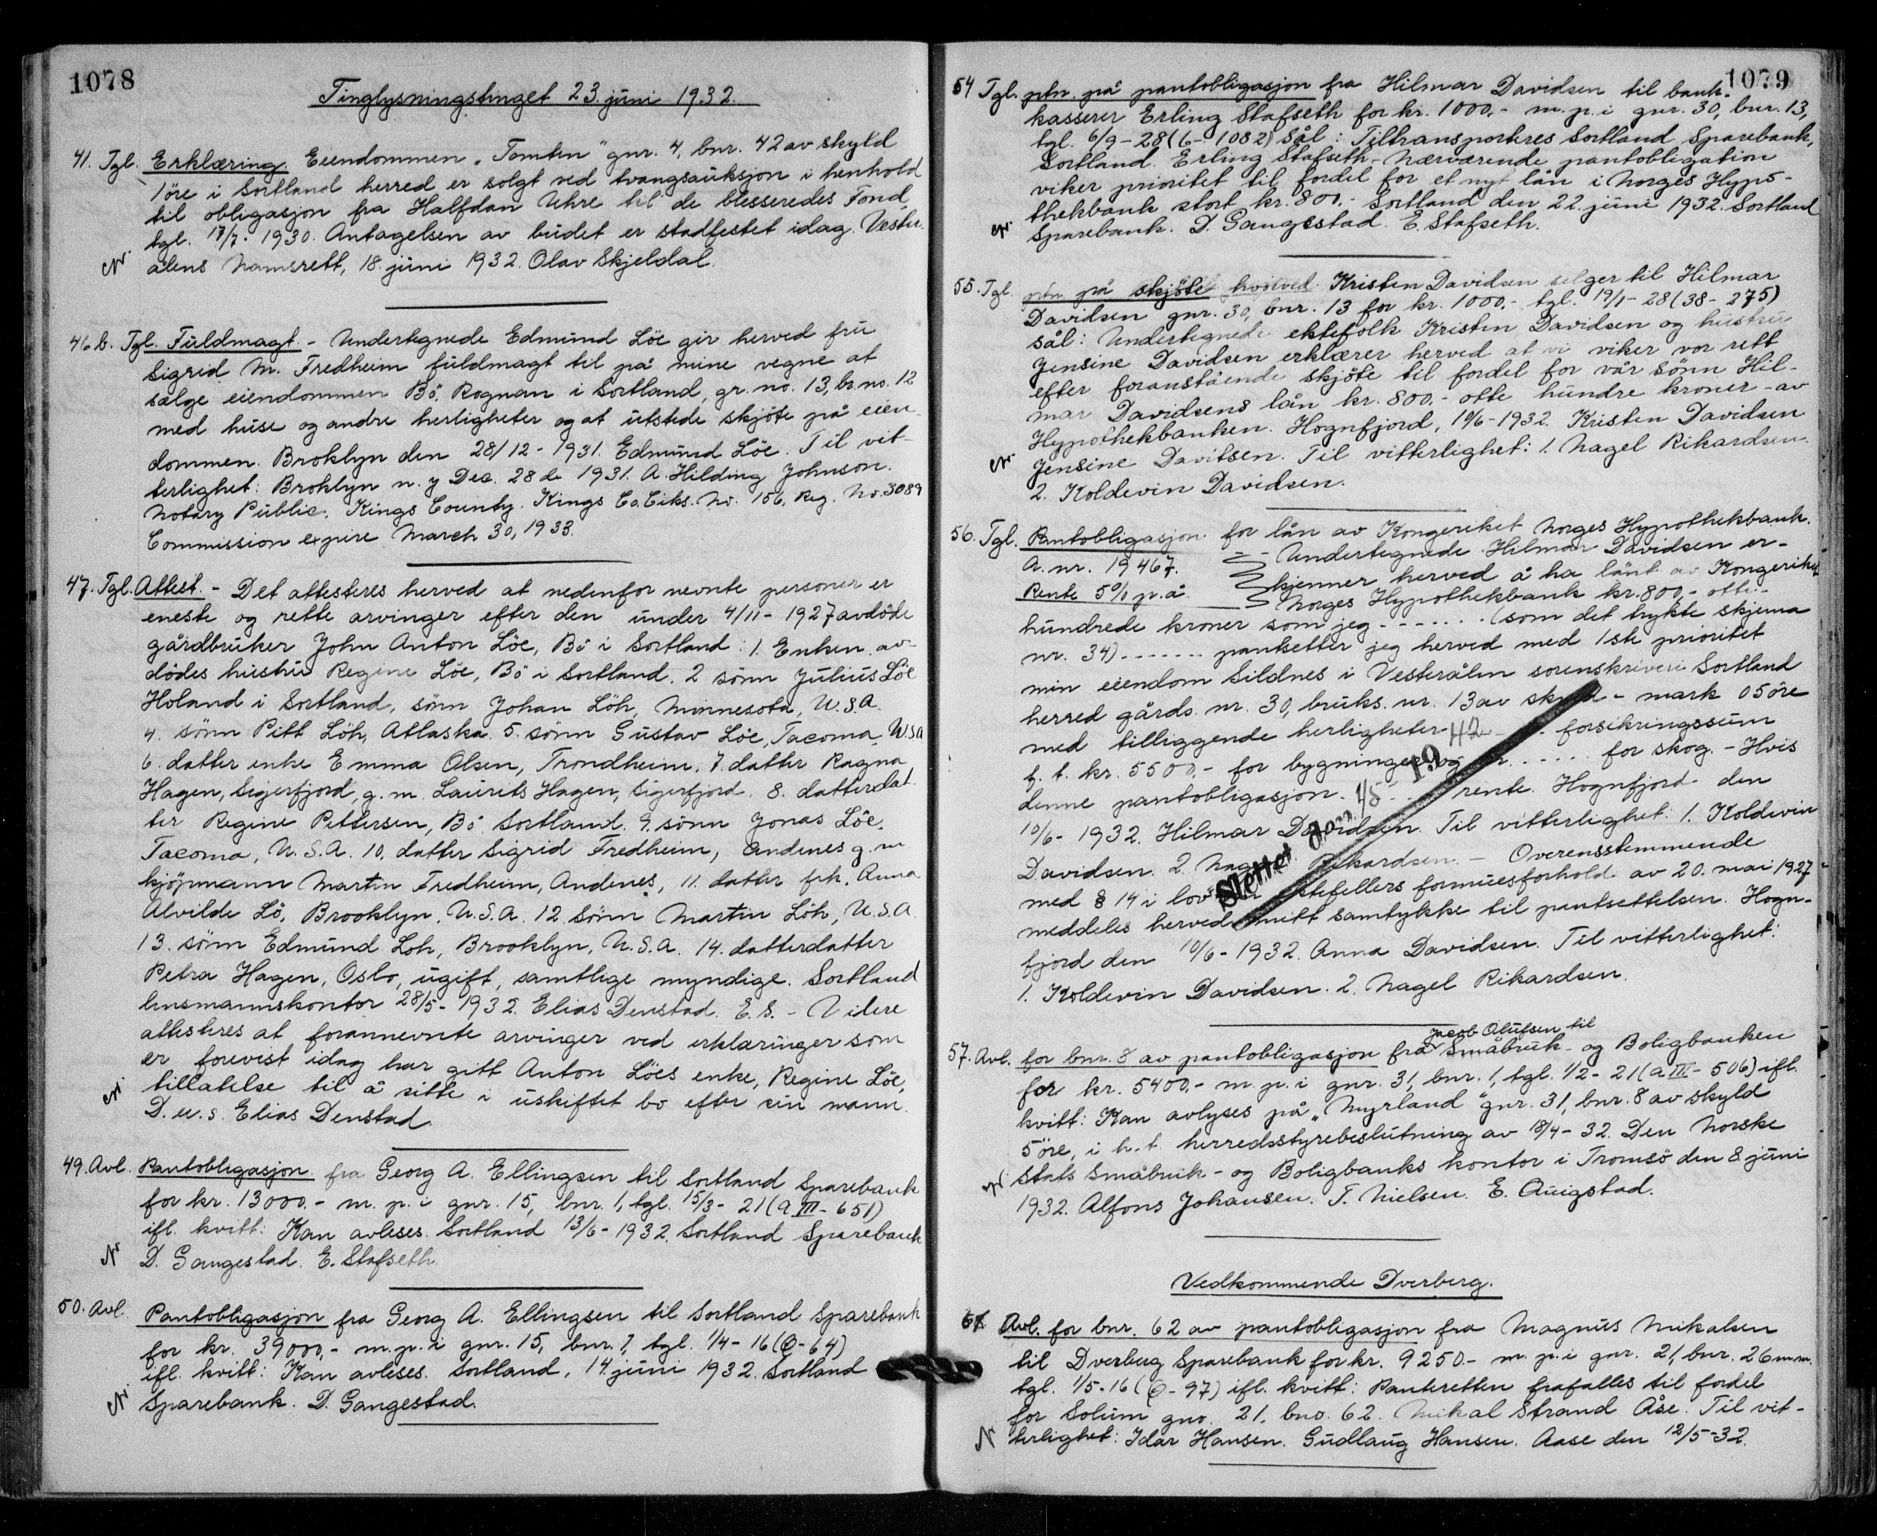 1078
Tinglysningstinget 23. juni 1932.
41. Tgl. Erklæring. Eiendommen „Tomten" gnr. 4, bnr. 42 av skyld
1 öre i Sortland herred er solgt ved tvangsauksjon i henhold
til obligasjon fra Halfdan Uhre til de blesseredes Fond,
tgl. 17/7-1930. Antagelsen av budet er stadfestet idag. Vester-
ålens Namsrett, 18. juni 1932. Olav Skjeldal.
46 b. Tgl. Fuldmagt. - Undertegnede Edmund Löe gir herved fru
Sigrid M. Fredheim fuldmagt til på mine vegne at
sælge eiendommen Bö, Rognan i Sortland, gr. no. 13, br. no. 12
med huse og andre herligheter og at utstede skjöte på eien-
dommen. Broklyn den 28/12-1931. Edmund Löe. Til vit-
terlighet: Broklyn n. y Dec. 28 de 1931. A. Hilding Johnson.
Notary Public. Kings County. Kings Co. Clks. No. 156, Reg. No. 3089
Commission expire March 30, 1933.
47. Tgl. Attest - Det attesteres herved at nedenfor nevnte personer er
eneste og rette arvinger efter den under 4/11-1927 avdöde
gårdbruker John Anton Löe, Bö i Sortland: 1. Enken av-
dödes hustru Regine Löe, Bö i Sortland. 2 sönn Julius Löe
Holand i Sortland, sönn Johan Löh, Minnesota, U.S.A.
4. sönn Pitt Löh, Atlaska. 5. sönn Gustav Löe, Tacoma, U.S.A
6. datter enke Emma Olsen, Trondheim. 7. datter Ragna
Hagen, Sigerfjord, g. m. Laurits Hagen, Sigerfjord. 8. datterdat-
ter Regine Pettersen, Bö Sortland. 9. sönn Jonas Löe,
Tacoma, U.S.A. 10. datter Sigrid Fredheim, Andenes g. m
kjöpmann Martin Fredheim, Andenes, 11. datter frk. Anna
Alvilde Lö, Brooklyn, U.S.A. 12 sönn Martin Löh, U.S.A.
13. sönn Edmund Loh, Brooklyn, U.S.A. 14. datterdatter
Petra Hagen, Oslo, ugift, samtlige myndige. Sortland
lensmannskontor 28/5-1932. Elias Denstad. E. S. - Videre
attesteres at forannevnte arvinger ved erklæringer som
er forevist idag har gitt Anton Löes enke, Regine Löe,
tillatelse til å sitte i uskiftet bo efter sin mann.
D. u. s. Elias Denstad.
49. Avl. Pantobligasjon fra Georg A. Ellingsen til Sortland Sparebank
for kr. 13000.- m. p. i gnr. 15, bnr. 1, tgl. 15/3-21 (a III-651)
ifl. kvitt: Kan avleses. Sortland 13/6-1932. Sortland Sparebank
D. Gangestad. E. Stafseth.
50. Avl. Pantobligasjon fra Georg A. Ellingsen til Sortland Sparebank
for kr. 39000,- m. p. i gnr. 15, bnr. 1, tgl. 1/4-16 (O-64)
ifl. kvitt: Kan avleses. Sortland, 14. juni 1932. Sortland
Sparebank. D. Gangestad.
1079
54 Tgl. ptn. på pantobligasjon fra Hilmar Davidsen til bank-
kasserer Erling Stafseth for kr. 1000.- m. p. i gnr. 30, bnr. 13,
tgl. 6/9-28 (6-1082) sål: Tiltransporteres Sortland Sparebank,
Sortland. Erling Stafseth. - Nærværende pantobligation
viker prioritet til fordel for et nyt lån i Norges Hypo-
thekbank stort kr. 800.- Sortland den 22. juni 1932. Sortland
Sparebank. D. Gangestad. E. Stafseth.
55. Tgl. ptn. på skjöte hvorved Kristen Davidsen selger til Hilmar
Davidsen gnr. 30, bnr. 13 for kr. 1000.- tgl. 19/1-28 (38-275)
sål: Undertegnede ektefolk Kristen Davidsen og hustru
Jensine Davidsen erklærer herved at vi viker vor rett
efter foranstående skjöte til fordel for vår sönn Hil-
mar Davidsens lån kr. 800.- otte hundre kroner - av
Hypothekbanken. Hognfjord, 10/6-1932. Kristen Davidsen
Jensine Davitsen. Til vitterlighet: 1. Nagel Rikardsen.
2. Koldevin Davidsen.
56. Tgl. Pantobligasjon for lån av Kongeriket Norges Hypothekbank.
A. nr. 19467. Undertegnede Hilmar Davidsen er-
Rente 5% p. å. kjenner herved å ha lånt av Kongeriket
Norges Hypothekbank kr. 800,- otte-
hundrede kroner som jeg - - - - - - - (som det trykte skjema
nr. 34) - - - - - - - pantsetter jeg herved med 1ste prioritet
min eiendom Sildnes i Vesterålen sorenskriveri Sortland
herred gårds. nr. 30, bruks. nr. 13 av skyld - mark 05 öre
med tilliggende herligheter - - - forsikringssum
f. t. kr. 5500,- for bygninger og kr. - - - - for skog. - Hvis
denne pantobligasjon - - - rente. Hognfjord den
10/6-1932. Hilmar Davidsen. Til vitterlighet: 1. Koldevin
Davidsen. 2. Nagel Rikardsen. - Overensstemmende
med § 14 i lov om ektefellers formuesforhold av 20. mai 1927
meddeles herved mitt samtykke til pantsettelsen. Hogn-
fjord den 10/6-1932. Anna Davidsen. Til vitterlighet:
1. Koldevin Davidsen. 2. Nagel Rikardsen.
Slettet den 1/5 1942
57. Avl. for bnr. 8 av pantobligasjon fra Jacob Olufsen til Småbruk- og Boligbanken
for kr. 5400,- m. p. i gnr. 31, bnr. 1, tgl. 1/2-21 (a III-506) ifl.
kvitt: Kan avlyses på „Myrland" gnr. 31, bnr. 8 av skyld
5 öre, i h. t. herredsstyrebeslutning av 18/4-32. Den Norske
Stats Småbruk- og Boligbanks kontor i Tromsö den 8 juni
1932. Alfons Johansen. T. Nielsen. E. Augstad.
Vedkommende Dverberg.
61 Avl. for bnr. 62 av pantobligasjon fra Magnus Mikalsen
til Dverberg Sparebank for kr. 9250.- m. p. i gnr. 21, bnr. 26 m. m.
tgl. 1/5-16 (O-97) ifl. kvitt: Panteretten frafalles til fordel
for Solum gno. 21, bno. 62. Mikal Strand Åse. Til vit-
terlighet: Idar Hansen. Gudlaug Hansen. Aase den 12/5-32.